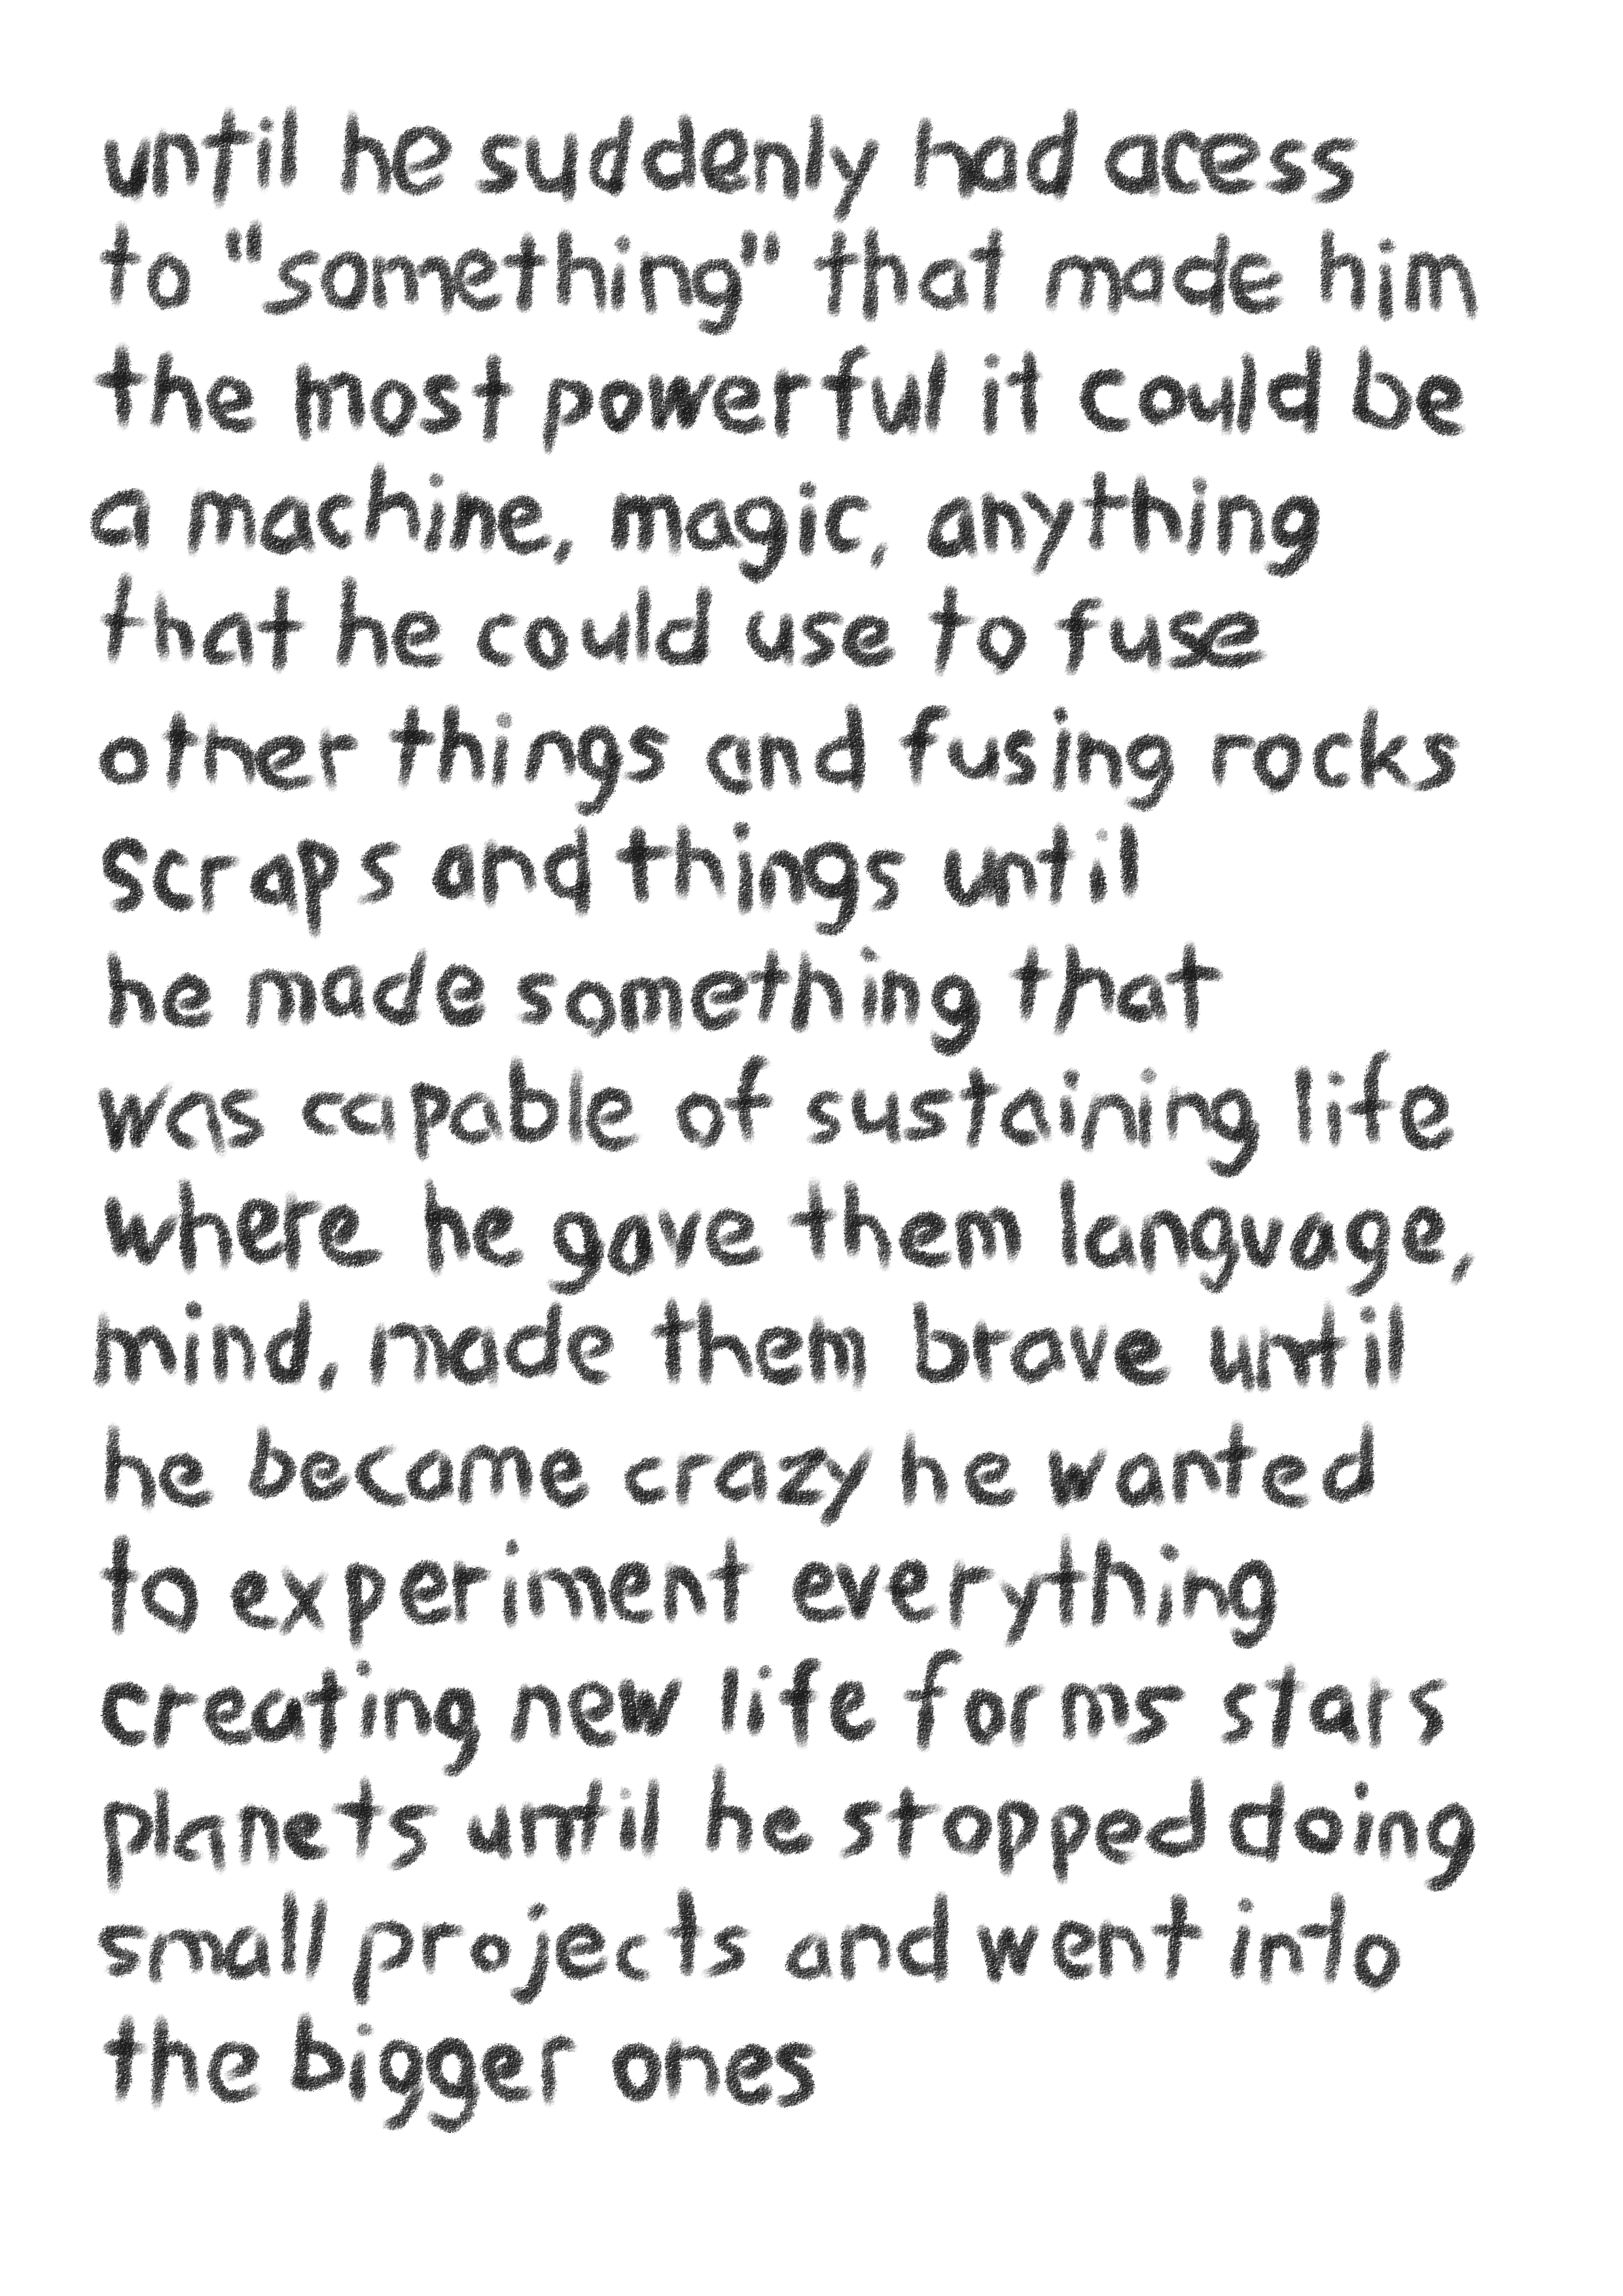 until he suddenly had acess
to "something" that made him
the most powerful it could be
a machine, magic, anything
that he could use to fuse
other things and fusing rocks
scraps and things until
he made something that
was capable of sustaining life
where he gave them language,
mind, made them brave until
he became crazy he wanted
to experiment everything
creating new life forms stars
planets until he stopped doing
small projects and went into
the bigger ones